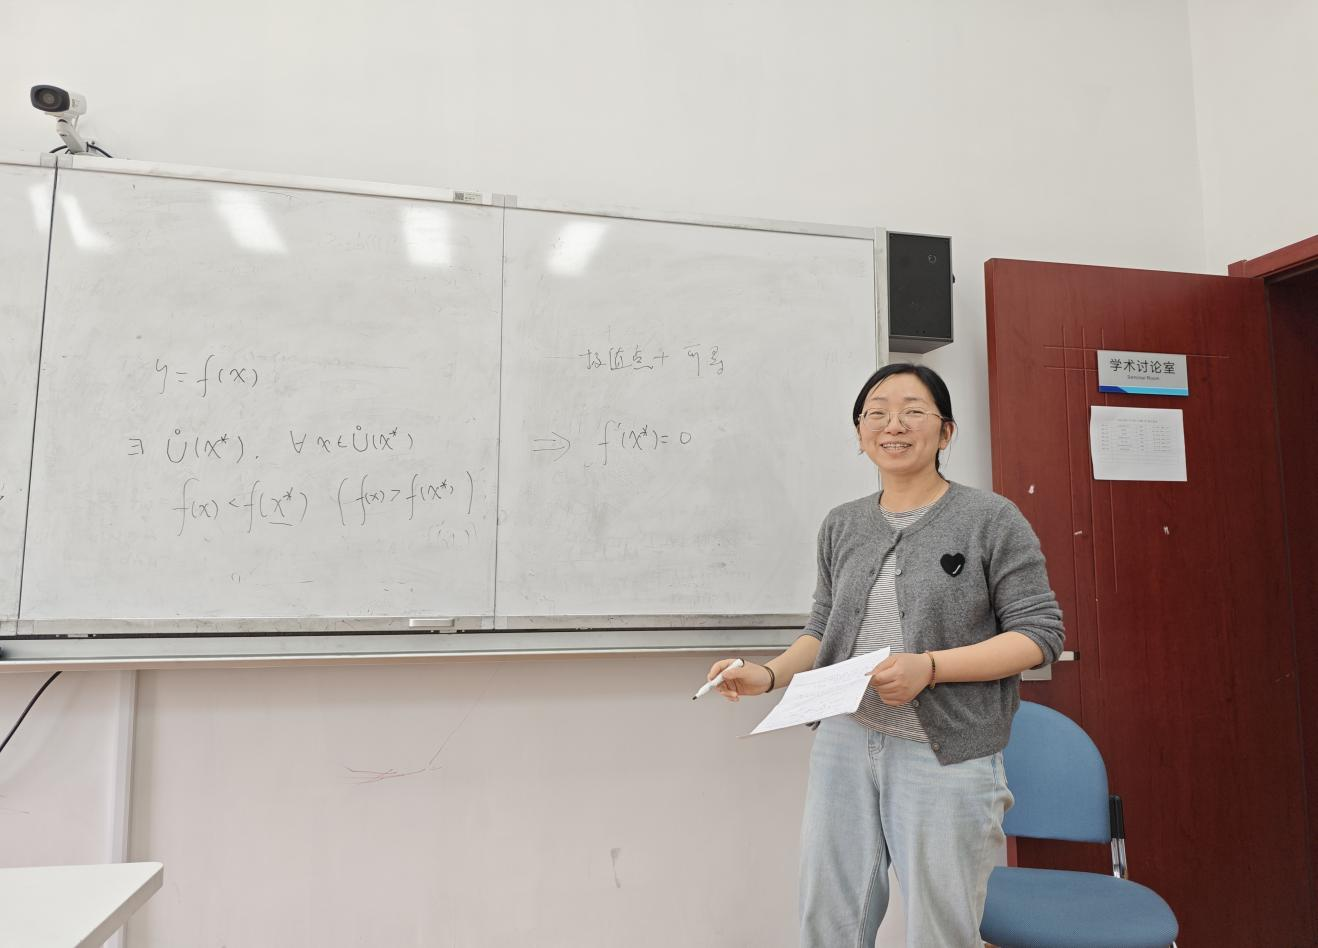 y = f(x)
∃ Ů(x*). ∀ x ∈ Ů(x*)
f(x) < f(x*) (f(x) > f(x*))
极值点 + 可导
⇒ f'(x*) = 0
学术讨论室
Seminar Room